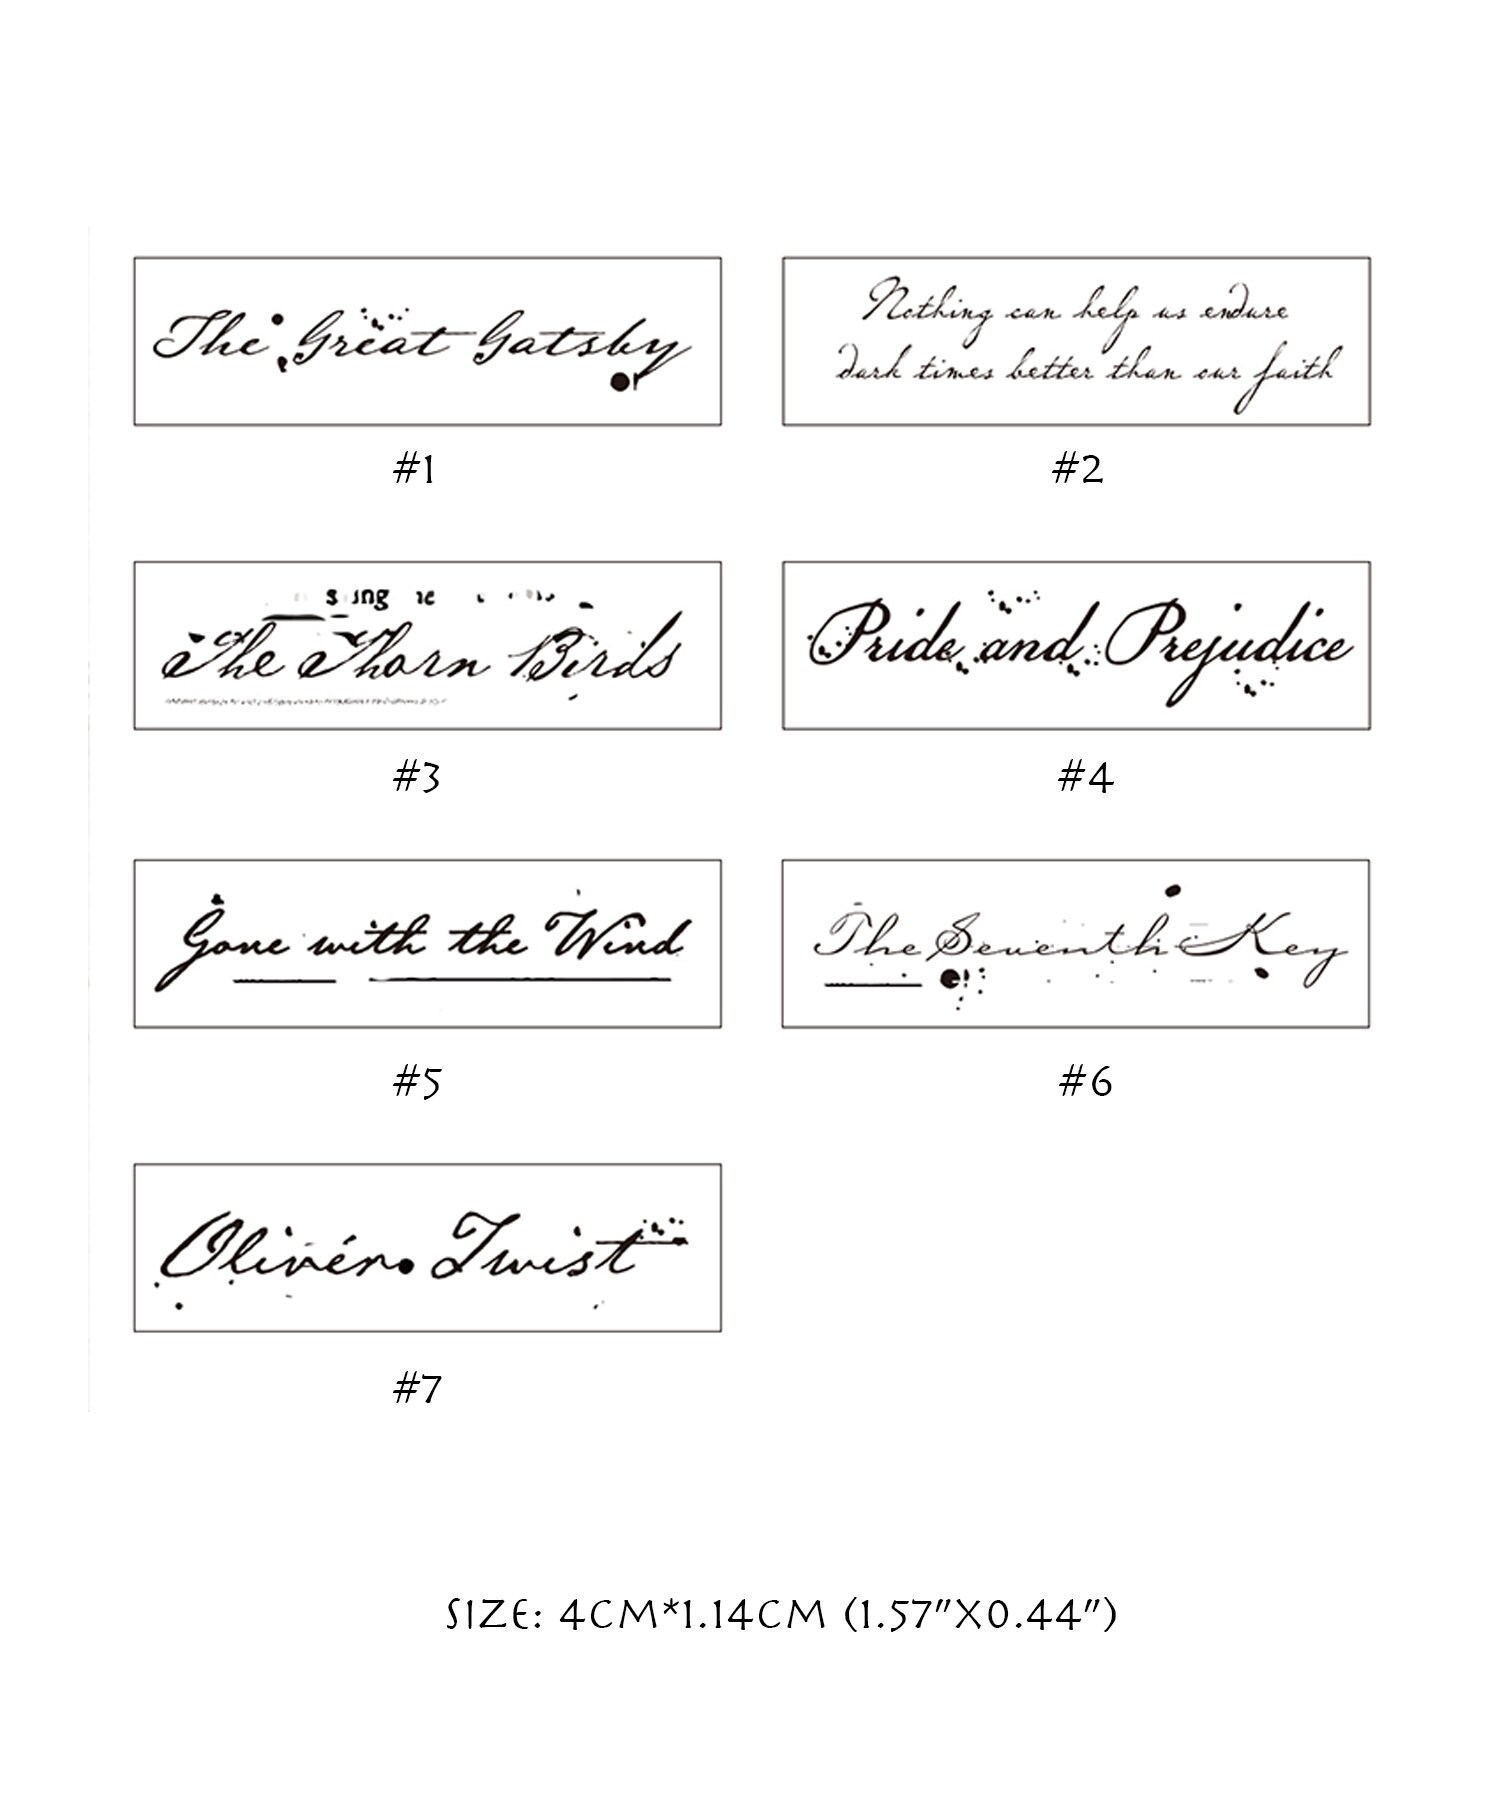 The Great Gatsby
#1
Nothing can help us endure
dark times better than our faith
#2
The Thorn Birds
#3
Pride and Prejudice
#4
Gone with the Wind
#5
The Seventh Key
#6
Oliver Twist
#7
SIZE: 4CM*1.14CM (1.57"X0.44")